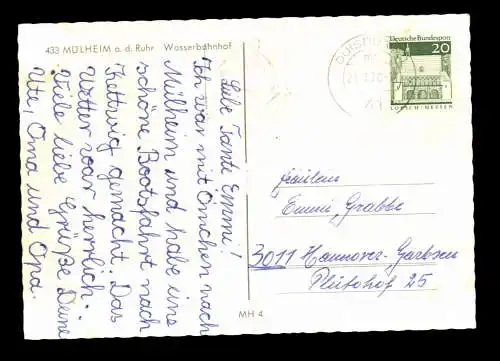 433 MÜLHEIM a. d. Ruhr Wasserbahnhof
Liebe Tante Emmi!
Ich war mit Omchen nach
Mülheim und habe eine
schöne Bootsfahrt nach
Kettwig gemacht. Das
Wetter war herrlich.
Viele liebe Grüße Deine
Ute, Oma und Opa.
MH 4
DUISBURG
Deutsche Bundespost
20
LORSCH/HESSEN
Fräulein
Emmi Grabbe
3011 Hannover-Garbsen
Plutohof 25